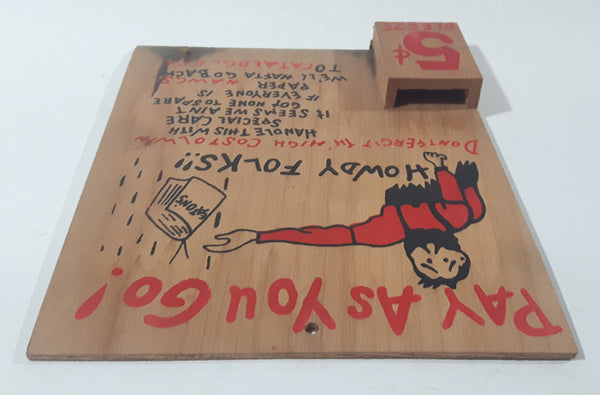 PAY AS YOU GO!
EATONS
HOWDY FOLKS!!
DONT FERGIT TH' HIGH COST O LIVIN
HANDLE THIS WITH
SPECIAL CARE
IT SEEMS WE AIN'T
GOT NONE TO SPARE
IF EVERYONE IS
PAPER HAWGS
WE'LL HAFTA GO BACK
TO
5¢
PLEEZE